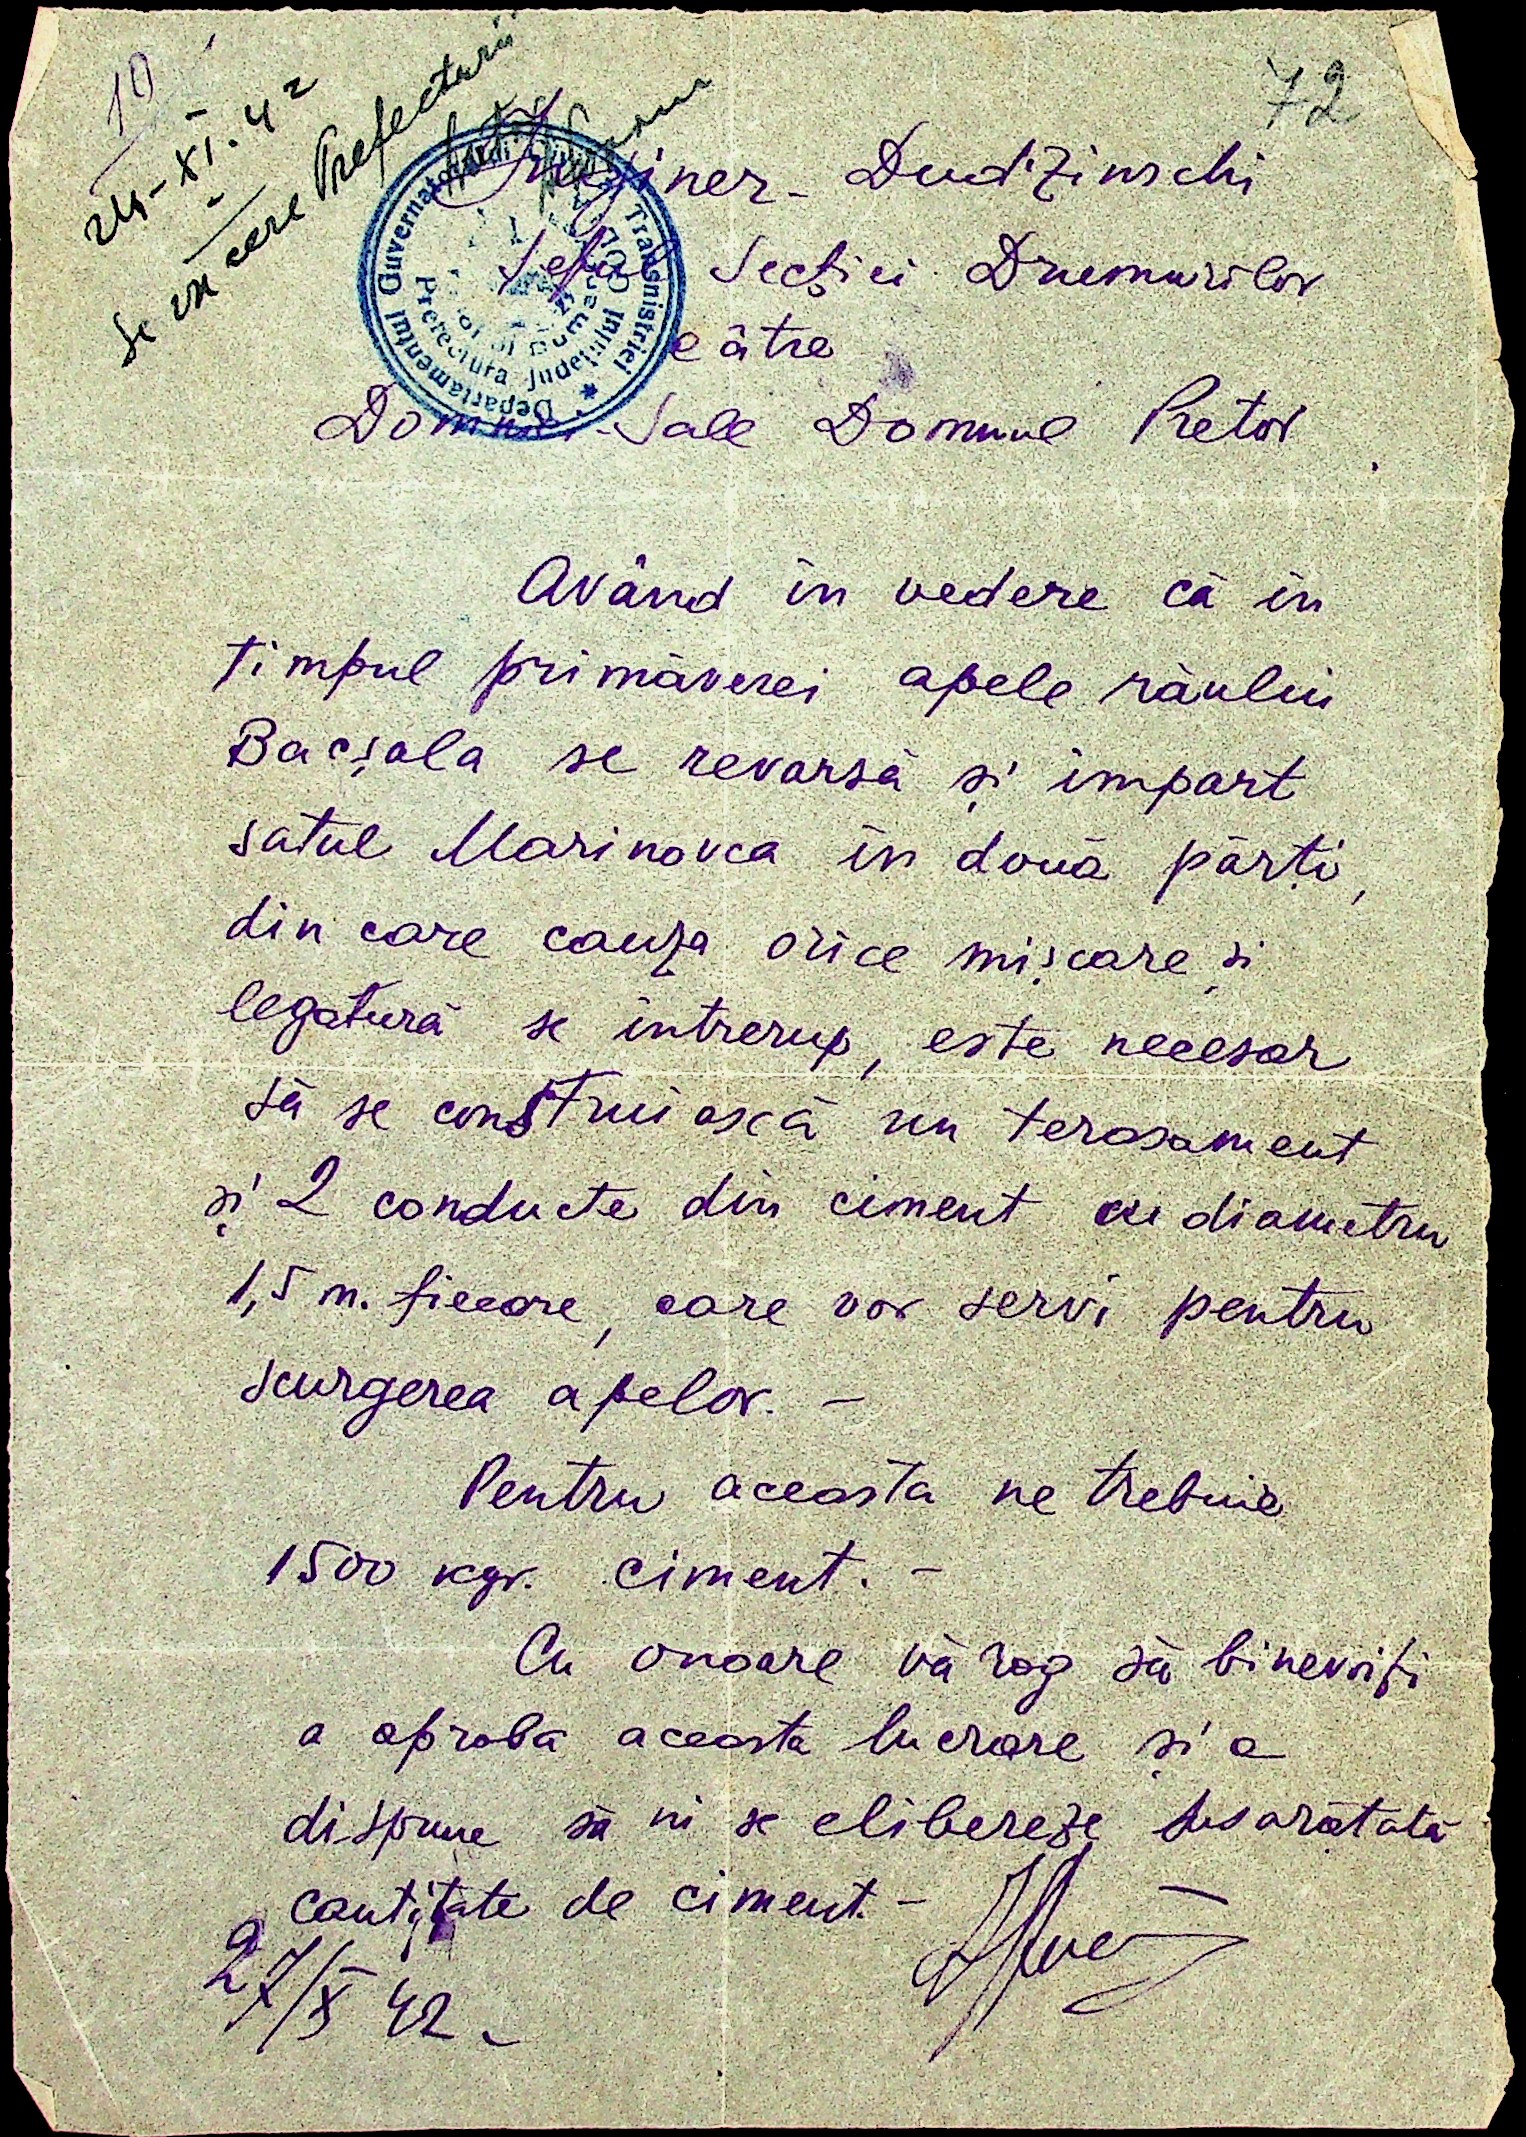 10
72
24-XI.42
Se va cere Prefecturii
Inginer- Dudzinschi
Șeful Secției Drumurilor
către
Domniei-Sale Domnul Pretor
Guvernatorul Transnistriei
Departamentul
Prefectura Județului
Având în vedere că în
timpul primăverei apele râului
Bacșala se revarsă și impart
satul Marinovca în două părți,
din care cauza orice mișcare și
legatură se intrerup, este necesar
să se construiască un terasament
și 2 conducte din ciment cu diametru
1,5 m. fiecare, care vor servi pentru
scurgerea apelor. -
Pentru aceasta ne trebuie
1500 kgr. ciment. -
Cu onoare vă rog să binevoiți
a aproba aceasta lucrare și a
dispune să ni se elibereze susarătată
cantitate de ciment. -
27/X 42. -